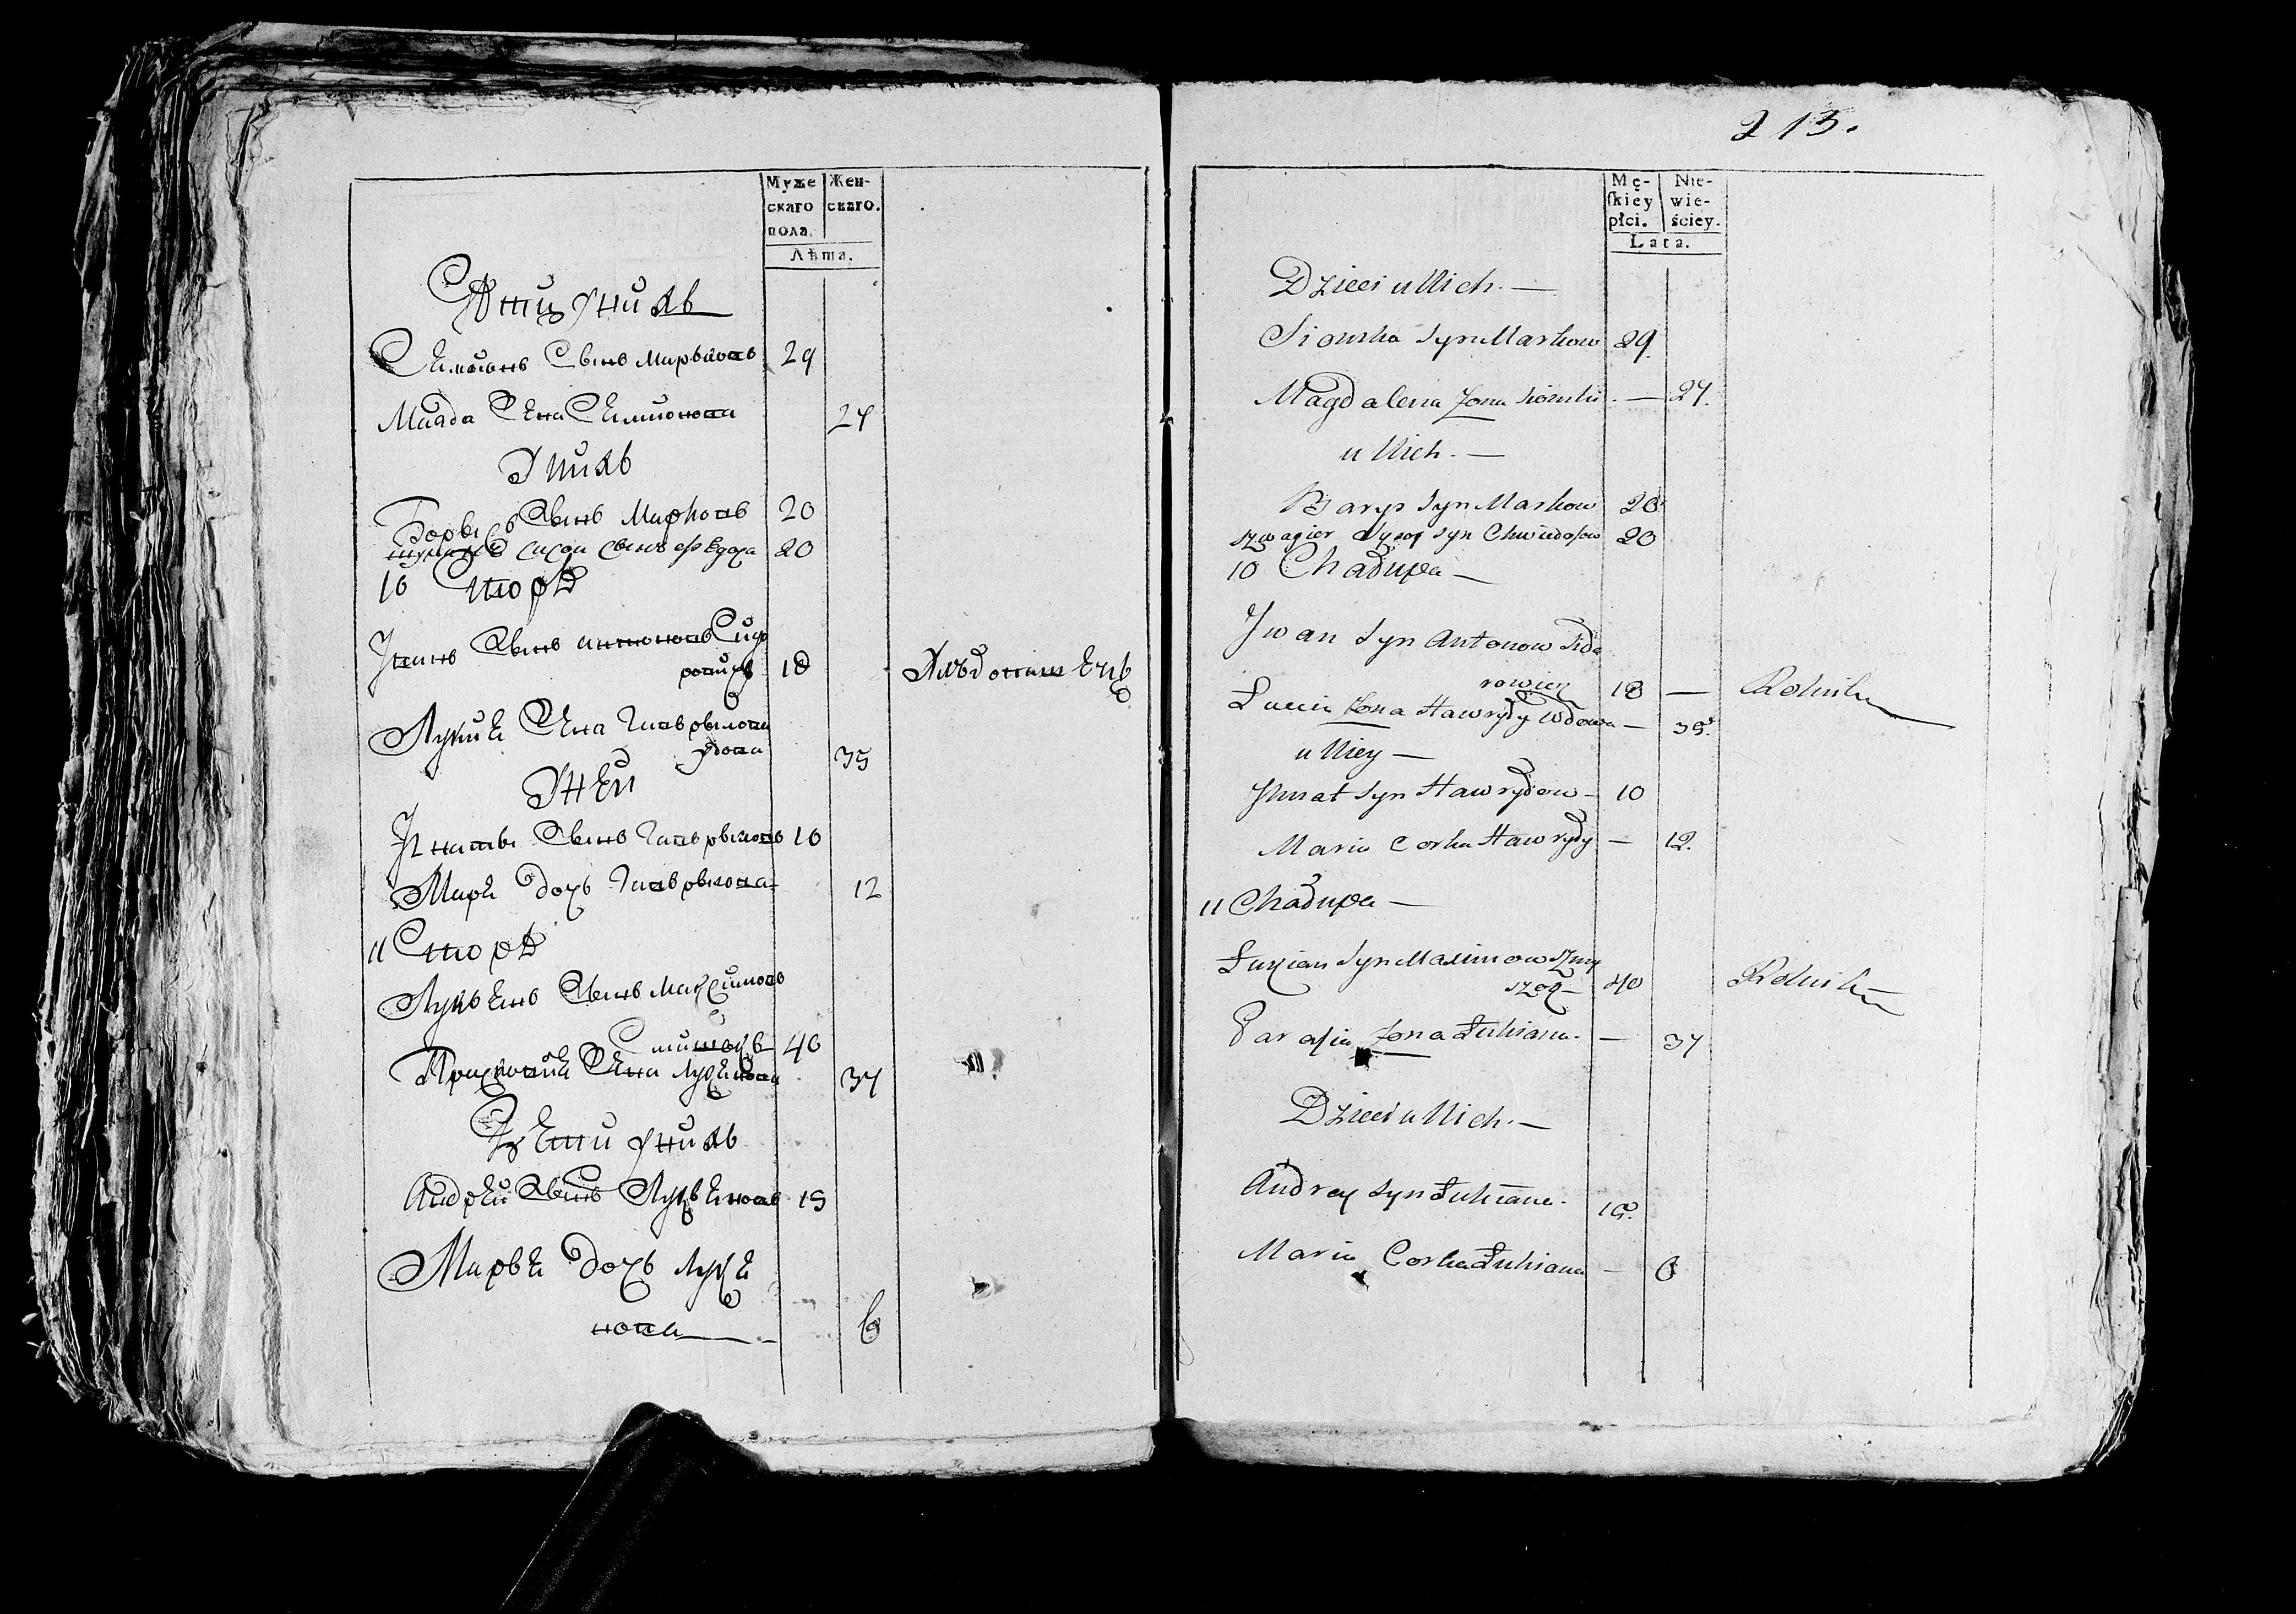 Муже
скаго
пола.
Жен-
скаго.
Лѣта.
Дѣти у нихъ
Симонъ Сынъ Марковъ 29
Магда Жена Симонова 27
У нихъ
Борысъ Сынъ Марковъ 20
Сысой Сынъ 20
10
Иванъ Сынъ Антоновъ Сидо
ровичъ 18
Хлѣбопашецъ
Луция Жена Гаврылова
удова 35
У ней
Игнаты Сынъ Гаврыловъ 10
Маря дочь Гаврылова 12
11
Лукъянъ Сынъ Максимовъ
40
Жена Лукянова 37
Дѣти у нихъ
Андрей Сынъ Лукъяновъ 15
Маръя дочь Лукя
нова 6
213.
Mę-
ſkiey
płci.
Nie-
wie-
ściey.
Lata.
Dzieci u Nich. —
Siomka Syn Markow 29.
Magdalena Żona Siomki — 27.
u Nich. —
Barys Syn Markow 20
szwagier Sysoy syn Chwiedosow 20
10 Chałupa —
Jwan Syn Antonow Sido
rowicz 18 — Rolnik
Łucia Żona Hawryły Wdowa — 35.
u Niey —
Jhnat Syn Hawryłow — 10
Maria Corka Hawryły — 12.
11 Chałupa —
Łuzian Syn Maximow
40 Rolnik
Parasia Żona Łukiana. — 37
Dzieci u Nich. —
Andrey Syn Łukiana. 15.
Maria Corka Łukiana — 6